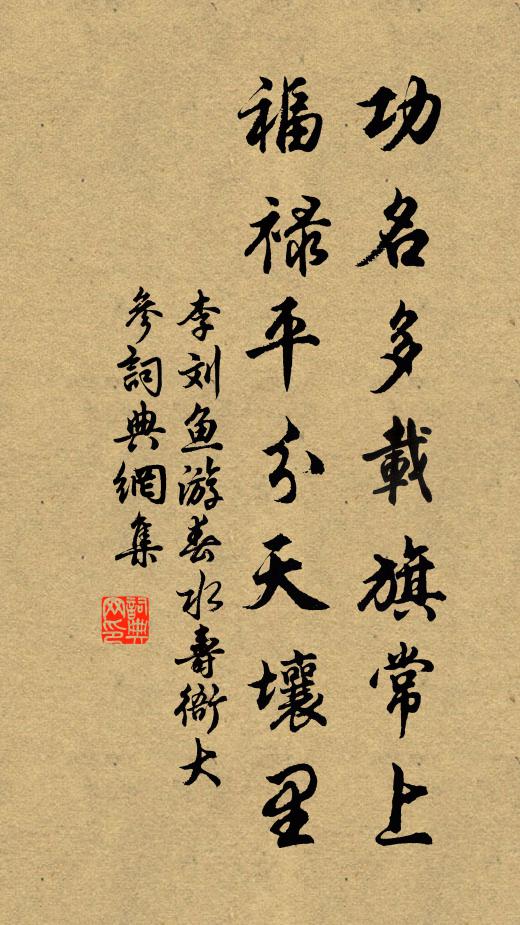 功名多載旗常上
福禄平分天壤里
李刘鱼游春水寿衞大
参詞典網集
詞典网印